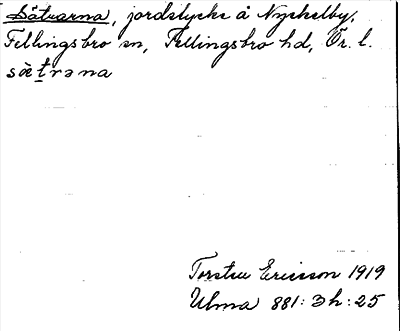 Sätrarna, jordstycke å Nyckelby,
Fellingsbro sn, Fellingsbro hd, Ör. l.
sätrəna
Torsten Ericsson 1919
Ulma 881:3h:25